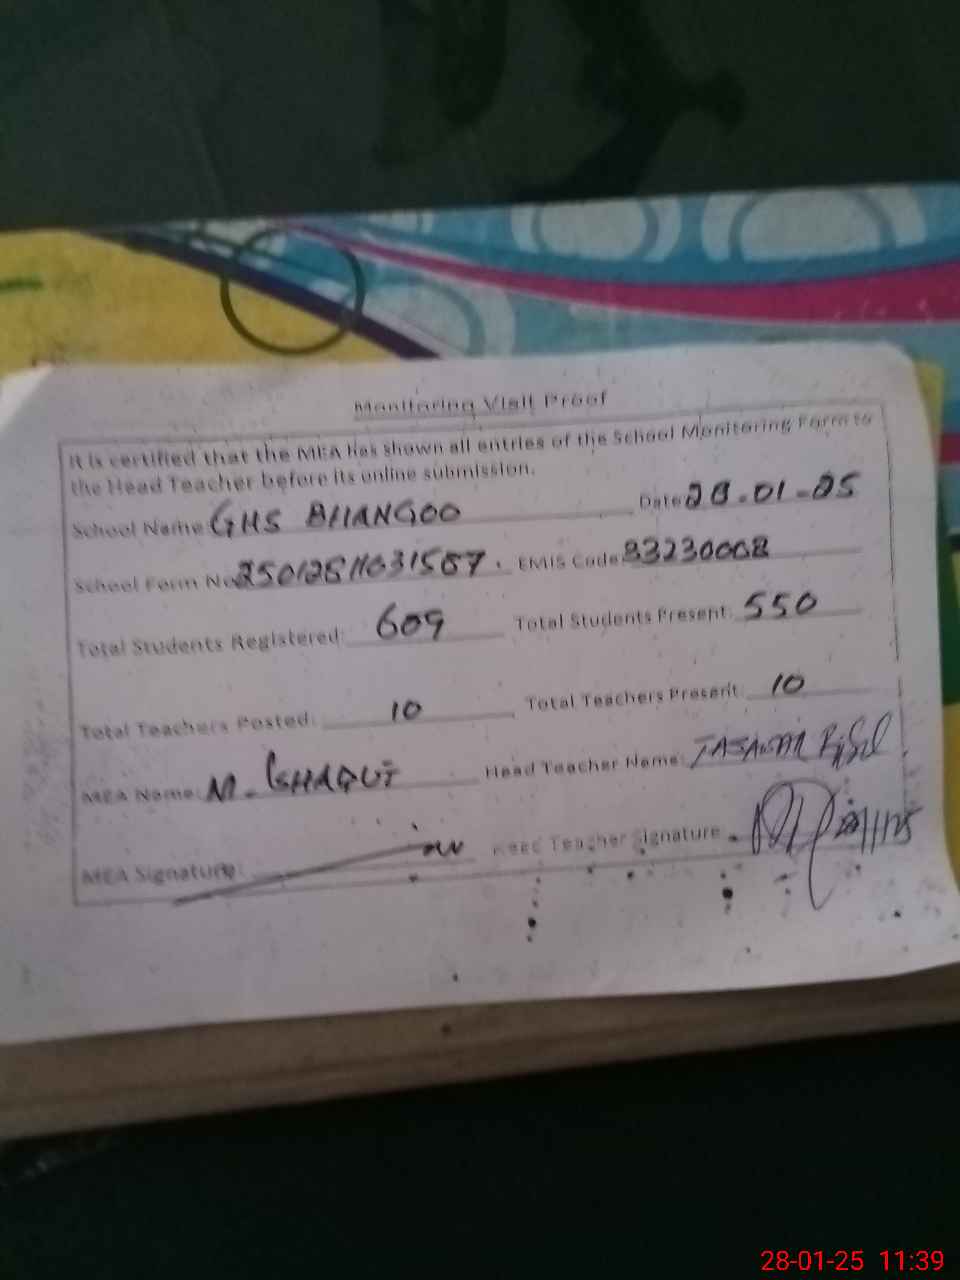 Monitoring Visit Proof
It is certified that the MEA has shown all entries of the School Monitoring Form to
the Head Teacher before its online submission.
School Name: GHS BHANGOO Date: 28-01-25
School Form No: EMIS Code:
Total Students Registered: 609 Total Students Present: 550
Total Teachers Posted: 10 Total Teachers Present: 10
MEA Name: M. ISHAQUE Head Teacher Name:
MEA Signature: Head Teacher Signature
28-01-25 11:39